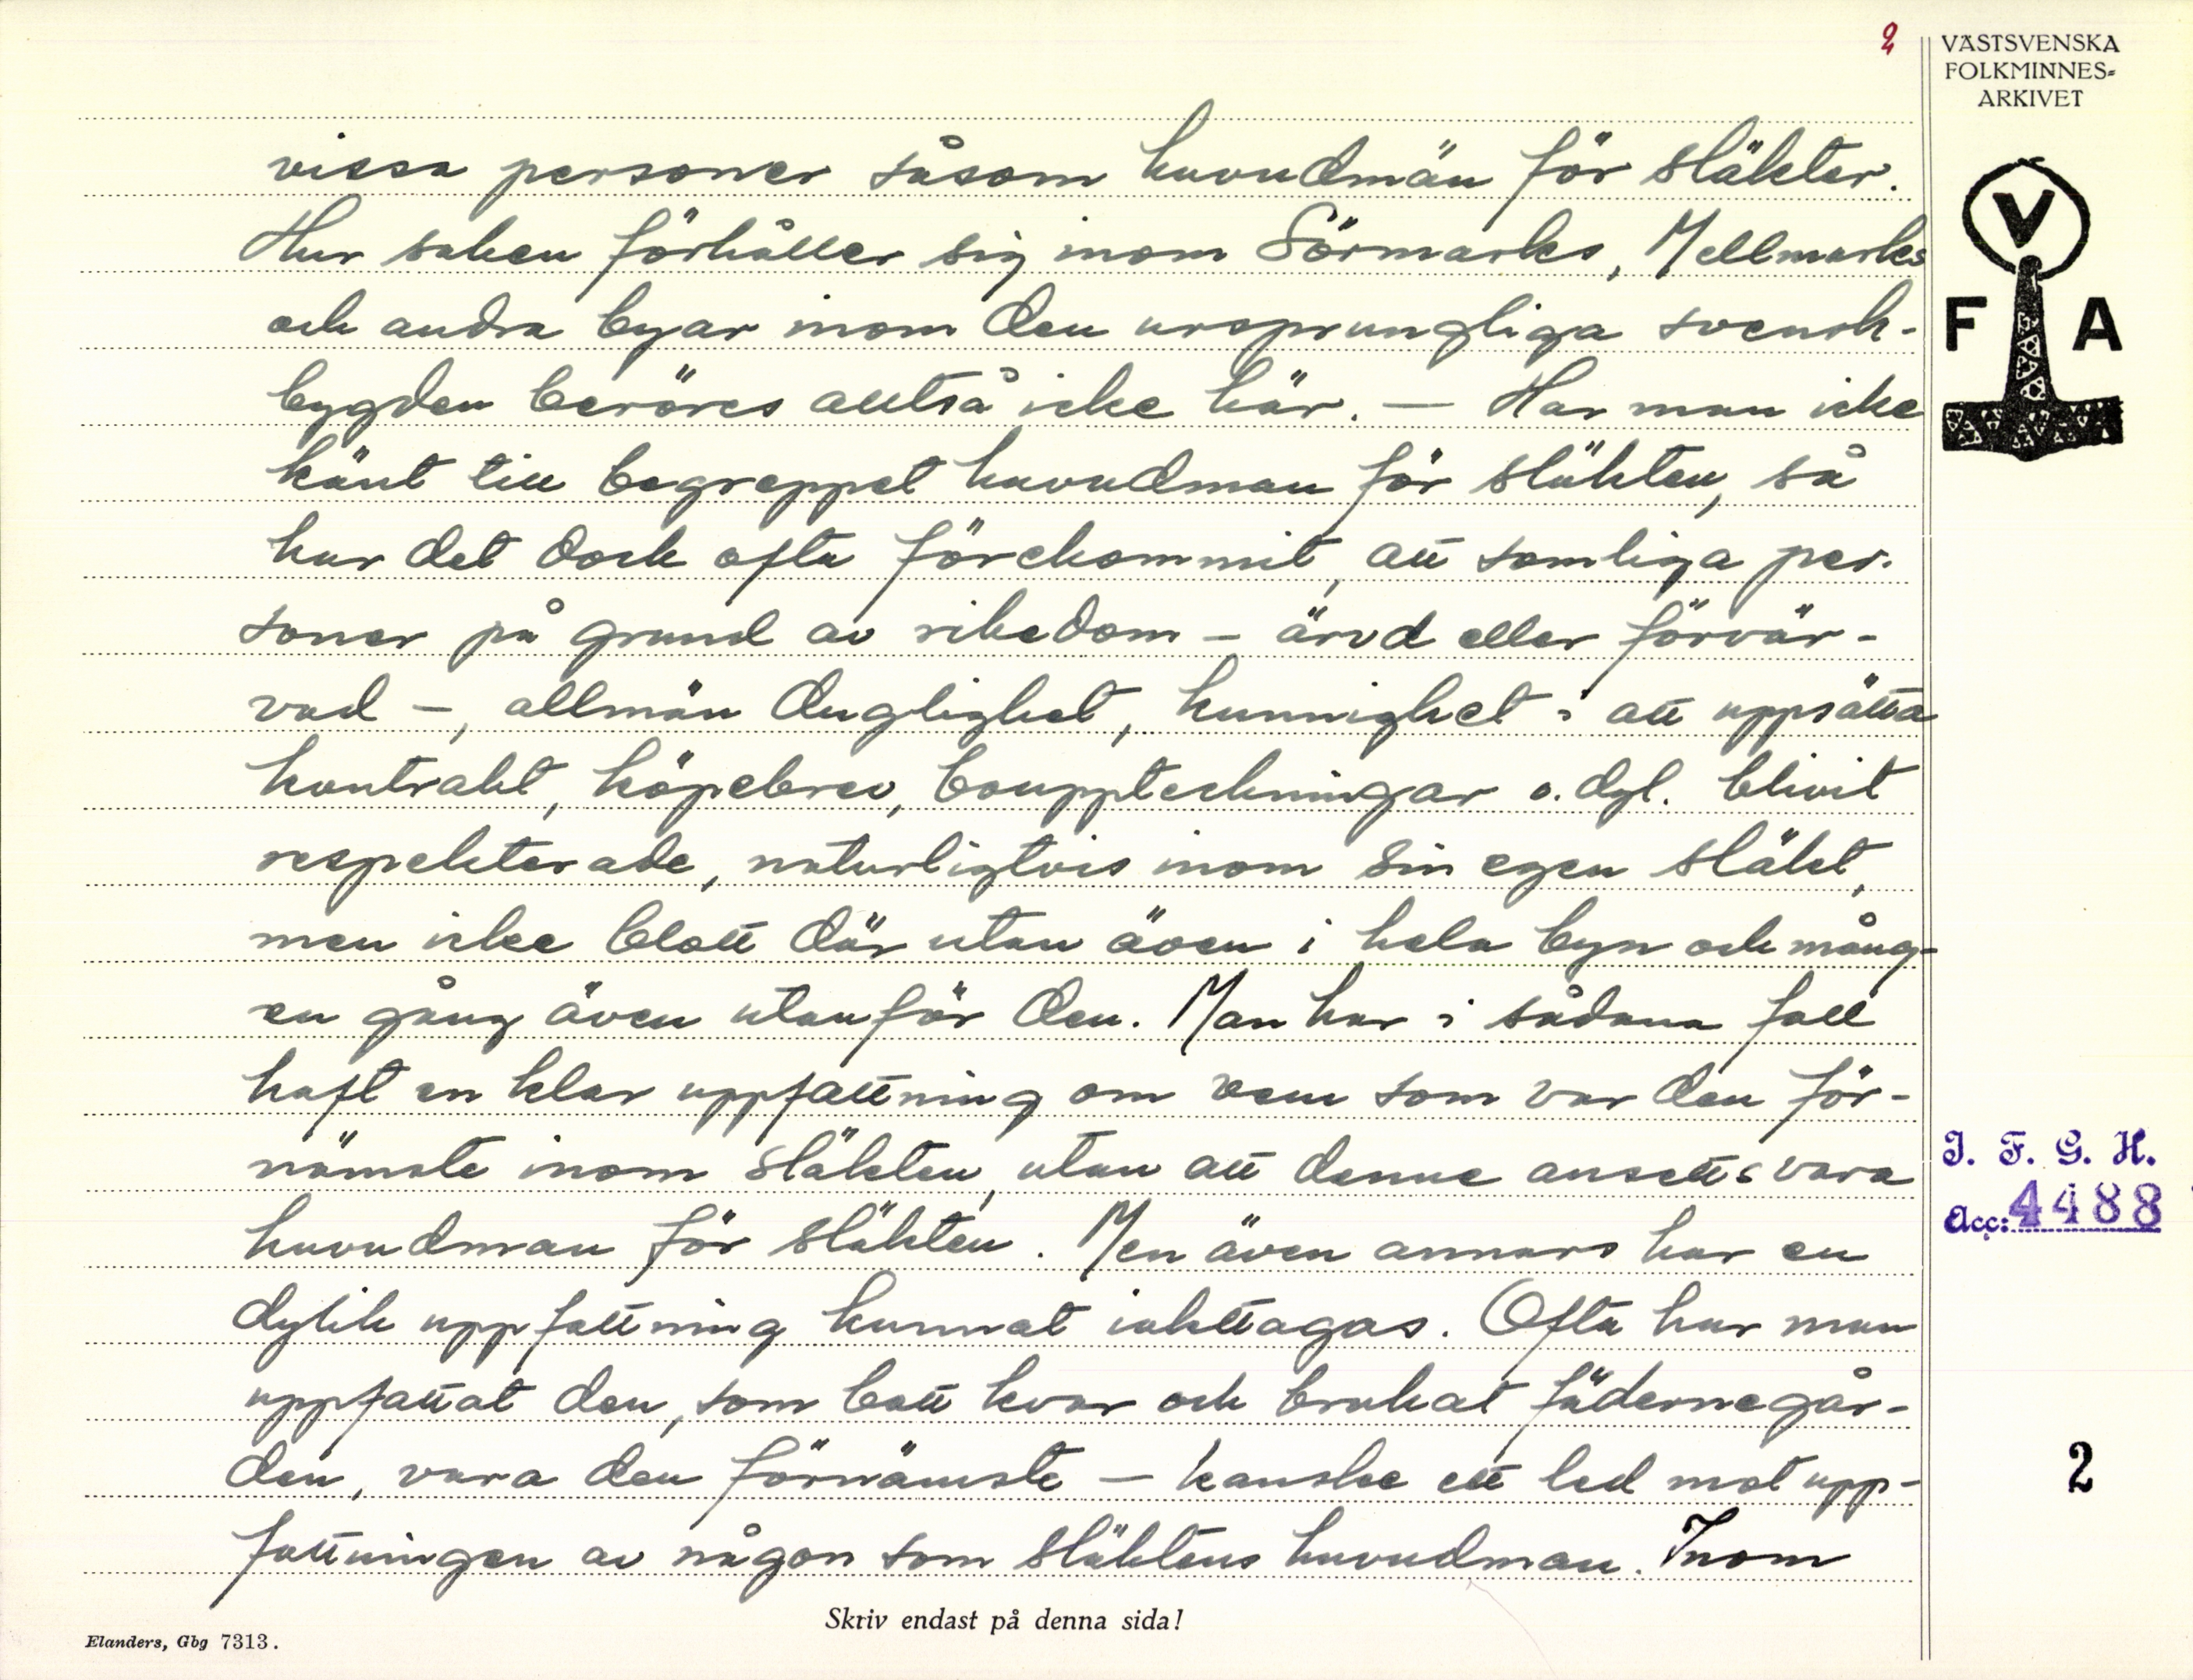 2
VÄSTSVENSKA
FOLKMINNES-
ARKIVET
V
F A
vissa personer såsom huvudmän för släkter.
Hur saken förhåller sig inom Sörmarks, Mellmarks
och andra byar inom den ursprungliga svensk-
bygden beröres alltså icke här. — Har man icke
känt till begreppet huvudman för släkten, så
har det dock ofta förekommit, att somliga per-
soner på grund av rikedom – ärvd eller förvär-
vad –, allmän duglighet, kunnighet i att uppsätta
kontrakt, köpebrev, bouppteckningar o. dyl. blivit
respekterade, naturligtvis inom sin egen släkt,
men icke blott där utan även i hela byn och mång-
en gång även utanför den. Man har i sådana fall
haft en klar uppfattning om vem som var den för-
nämste inom släkten, utan att denne ansetts vara
huvudman för släkten. Men även annars har en
dylik uppfattning kunnat iakttagas. Ofta har man
uppfattat den, som bott kvar och brukat fädernegår-
den, vara den förnämste — kanske ett led mot upp-
fattningen av någon som släktens huvudman. Inom
I. F. G. H.
Acc: 4488
2
Skriv endast på denna sida!
Elanders, Gbg 7313.